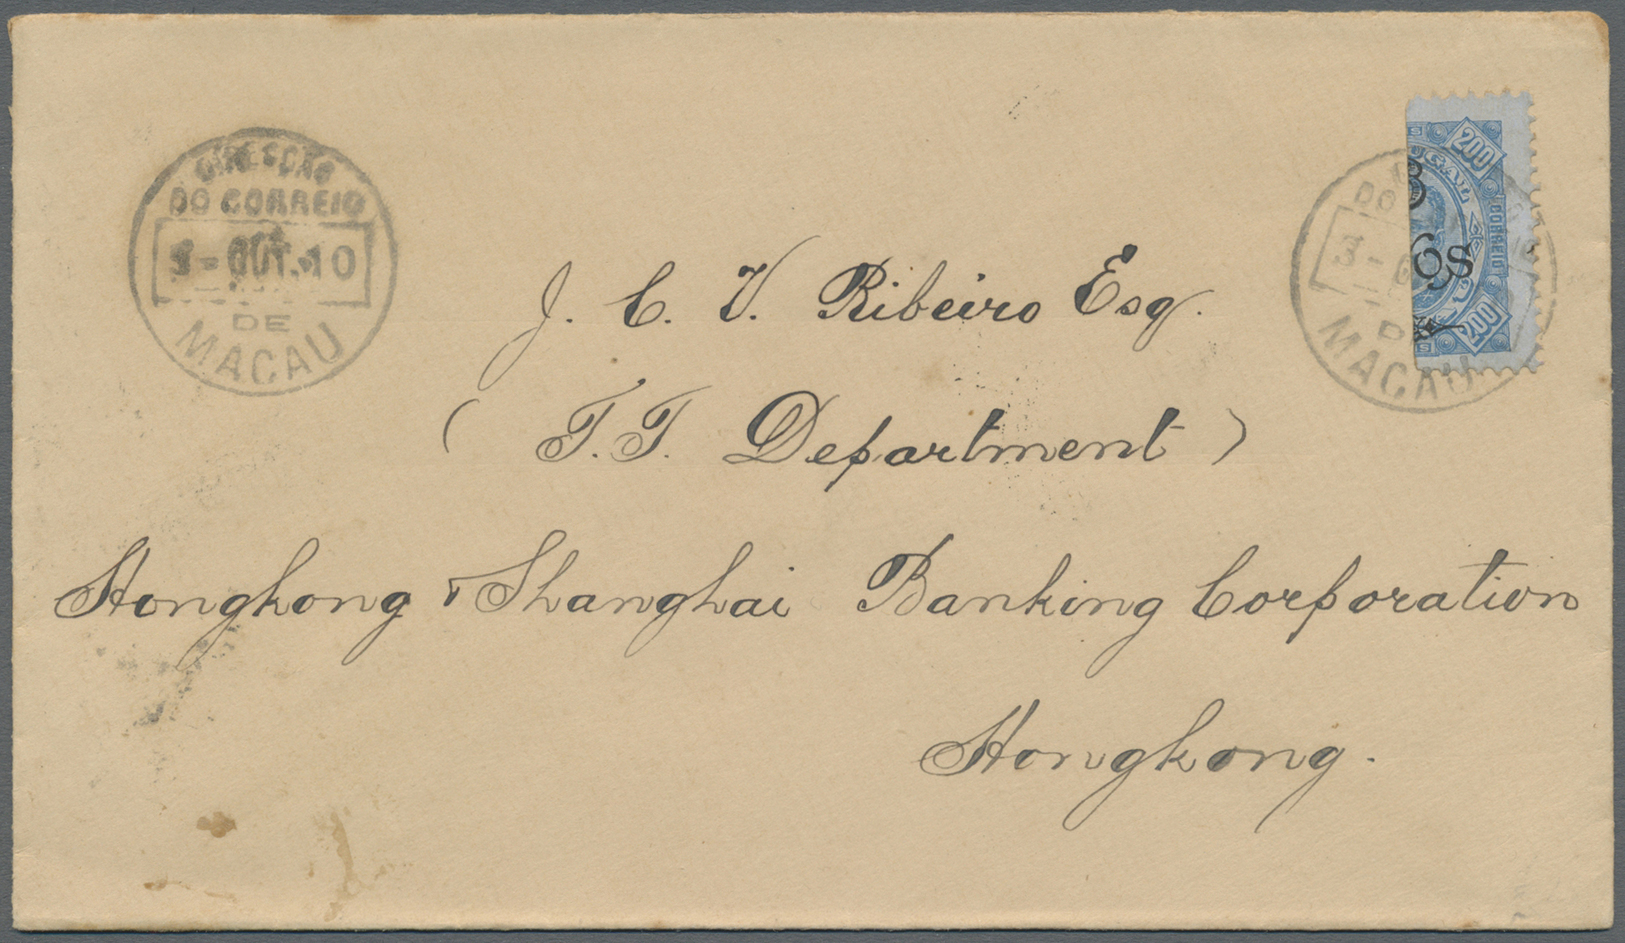 DIRECÇÃO
DO CORREIO
3-OUT.10
DE
MACAU
200
CORREIO
6s
200
DO
3-
MACAU
J. C. V. Ribeiro Esq.
( T. T. Department )
Hongkong & Shanghai Banking Corporation
Hongkong.